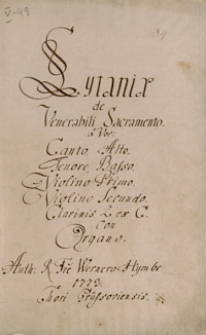 V-49
34
Lytaniæ
de
Venerabili Sacramento.
a Voc:
Canto, Alto,
Tenore, Basso,
Violino Primo,
Violino Secundo,
Clarinis 2 ex C.
Con
Organo.
Auth: R. Wernero
1773.
Chori